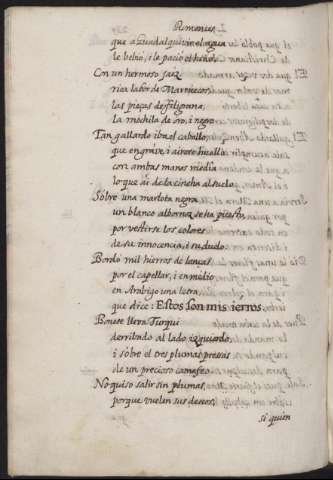 Romances
que a Guadalquivir el agua
le bebió, i le pació el heno.
Con un hermoso jaez
rica labor de Marruecos
las pieças de filigrana,
la mochila de oro, i negro
Tan gallardo iba el caballo,
que en grave, i airoso huello
con ambas manos media
lo que ai de la cincha al suelo.
Sobre una marlota negra
un blanco albornoz se ha puesto,
por vestirse los colores
de su innocencia, i su duelo.
Bordó mil hierros de lanças
por el capellar, i en medio
en Arabigo una letra
que dice: Estos son mis ierros.
Bonete lleva Turqui
derribado al lado izquierdo,
i sobre el tres plumas presas
de un precioso camafeo
No quiso salir sin plumas,
porque vuelen sus deseos,
si quien